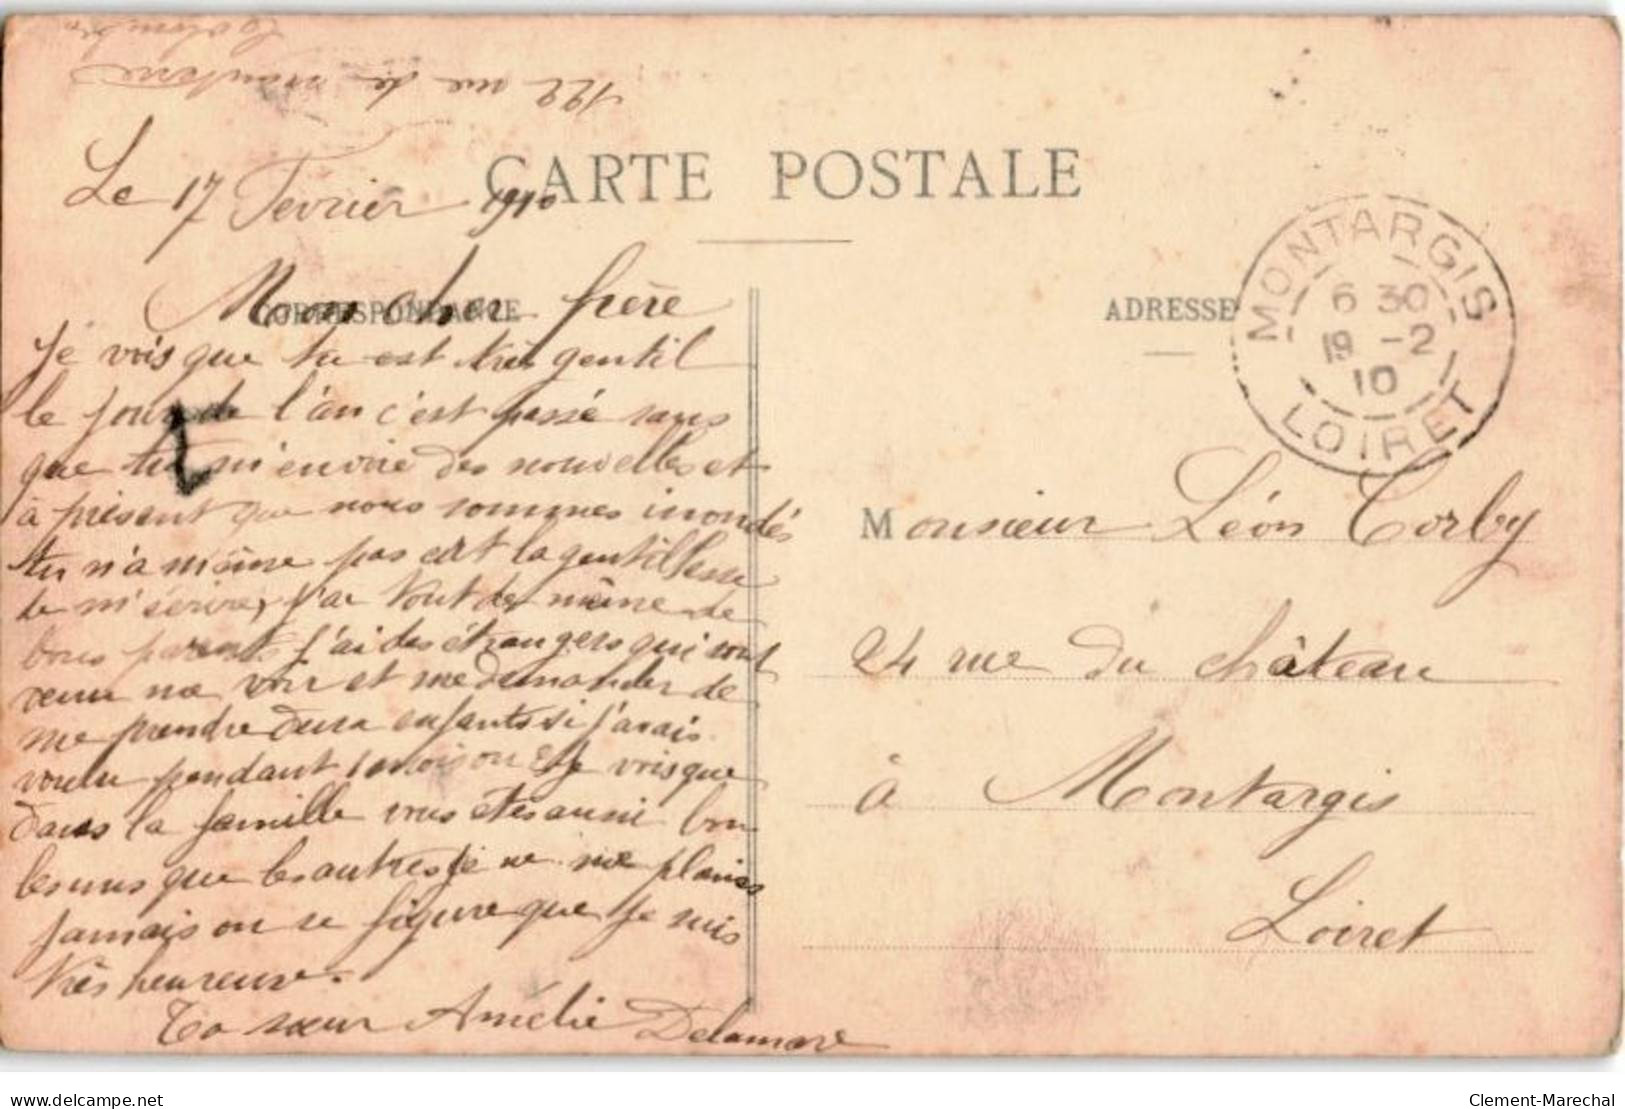 122 rue de nanterre
CARTE POSTALE
Le 17 Fevrier 1910
CORRESPONDANCE
Mon cher frère
Je vois que tu est très gentil
le jour de l'an c'est passé sans
que tu m'envoie des nouvelles et
à présent que nous sommes inondés
tu n'a même pas eut la gentillesse
de m'écrire, j'ai tout de même de
bons parents j'ai des étrangers qui sont
venu me voir et me demander de
me prendre deux enfants si j'avais
voulu pendant 1 mois on et je vois que
dans la famille vous êtes aussi bon
les uns que les autres je ne me plains
jamais on se figure que je suis
très heureuse.
Ta sœur Amélie Delamare
ADRESSE
MONTARGIS
6 30
19 -2
10
LOIRET
Monsieur Léon Corby
24 rue du château
à Montargis
Loiret
www.delcampe.net
Clement-Marechal